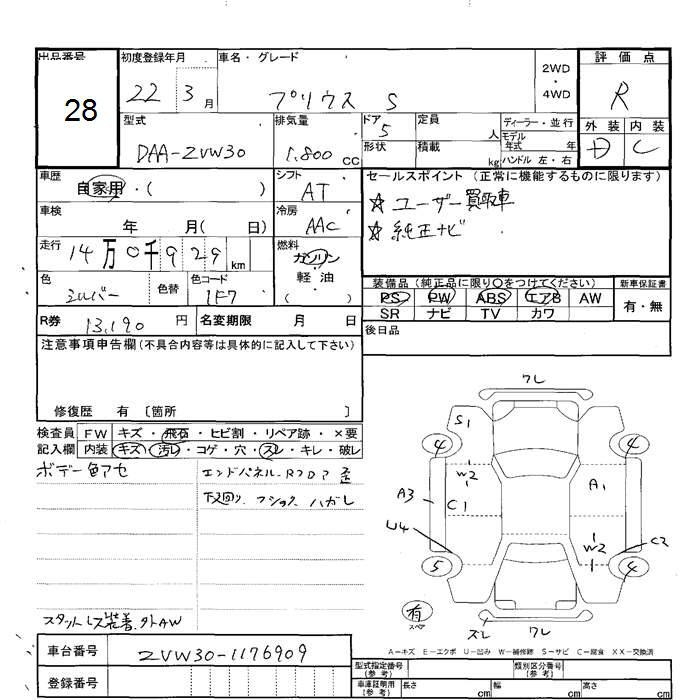 出品番号
28
初度登録年月
22 3 月
車名・グレード
プリウス S
2WD
・
4WD
評価点
R
外装 内装
D C
型式
DAA-ZVW30
排気量
1.800 cc
ドア
5
形状
定員
人
積載
kg
ディーラー・並行
モデル
年式 年
ハンドル 左・右
車歴
自家用・( )
シフト
AT
車検
年 月( 日)
冷房
AAC
走行
14万0千929 km
燃料
ガソリン
軽・油
( )
色
シルバー
色替
色コード
1F7
R券
13,190 円
名変期限 月 日
セールスポイント(正常に機能するものに限ります)
☆ ユーザー買取車
☆ 純正ナビ
装備品(純正品に限り○をつけてください)
PS PW ABS エアB AW
SR ナビ TV カワ
新車保証書
有・無
後日品
注意事項申告欄(不具合内容等は具体的に記入して下さい)
修復歴 有 〔箇所 〕
検査員
記入欄
FW キズ・飛石・ヒビ割・リペア跡・×要
内装 キズ・汚レ・コゲ・穴・スレ・キレ・破レ
ボデー色アセ
エンドパネル. Rフロア 歪
下廻り フショク ハガレ
スタットレス装着. 外AW
ワレ
S1
4
4
W2
A1
A3
C1
U4
W2
C2
5
4
有
スペア
スレ
ワレ
A－キズ E－エクボ U－凹み W－補修跡 S－サビ C－腐食 XX－交換済
車台番号
ZVW30-1176909
登録番号
型式指定番号
(参考)
類別区分番号
(参考)
車庫証明用
(参考)
長さ cm
幅 cm
高さ cm